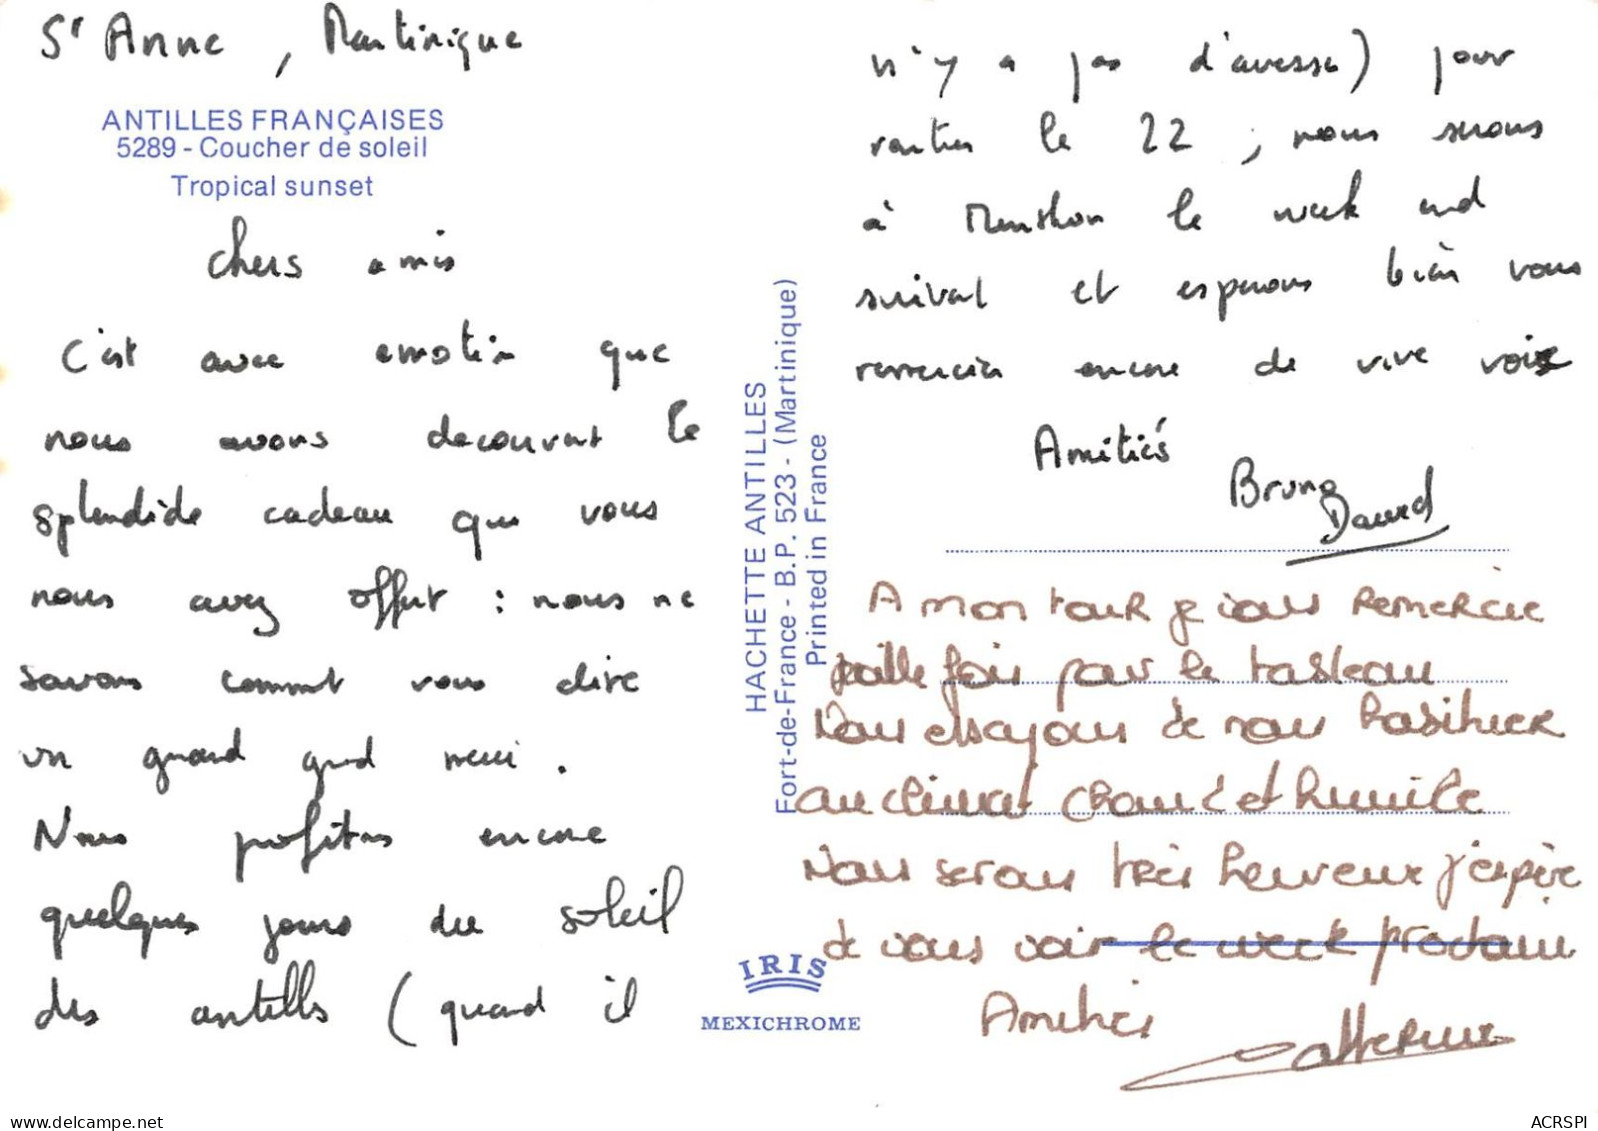 St Anne, Martinique
ANTILLES FRANÇAISES
5289 - Coucher de soleil
Tropical sunset
chers amis
C'est avec emotion que
nous avons decouvert le
splendide cadeau que vous
nous avez offert : nous ne
savons comment vous dire
un grand grand merci.
Nous profitons encore
quelques jours du soleil
des antilles (quand il
n'y a pas d'averse) pour
rentrer le 22 ; nous serons
à Menthon le week end
suivant et esperons bien vous
remercier encore de vive voix
Amitiés
Bruno
David
HACHETTE ANTILLES
Fort-de-France - B.P. 523 - (Martinique)
Printed in France
A mon tour je vous remercie
mille fois pour le tableau
Nous essayons de nous habituer
au climat chaud et humide
Nous serons très heureux j'espère
de vous voir le week prochain
Amitiés
Catherine
IRIS
MEXICHROME
delcampe.net
ACRSPI